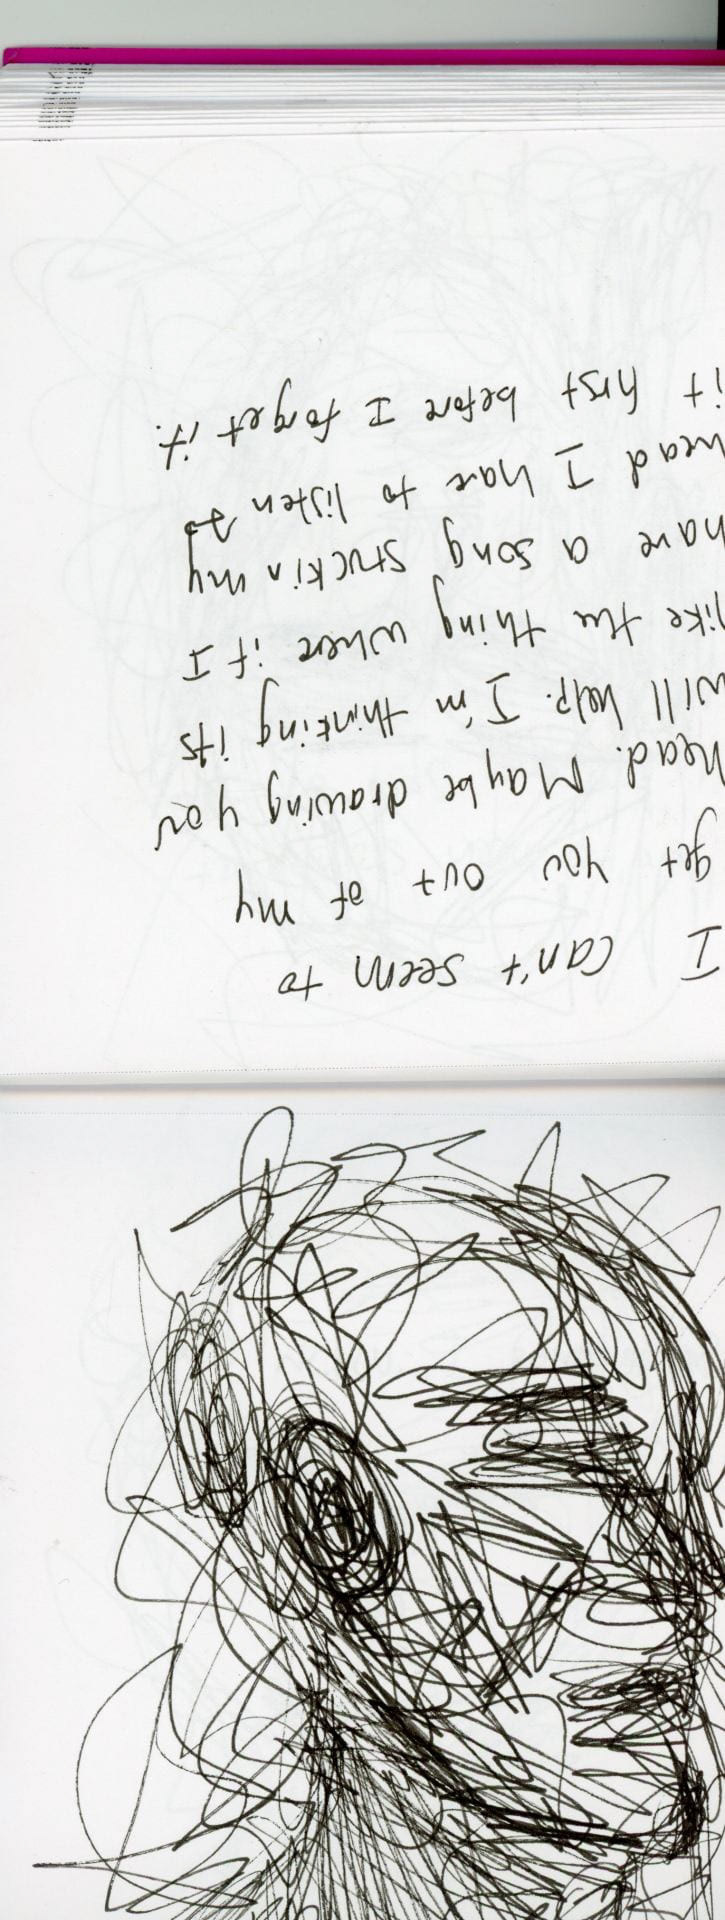 I can't seem to
get you out of my
head. Maybe drawing you
will help. I'm thinking its
like the thing where if I
have a song stuck in my
head I have to listen to
it first before I forget it.